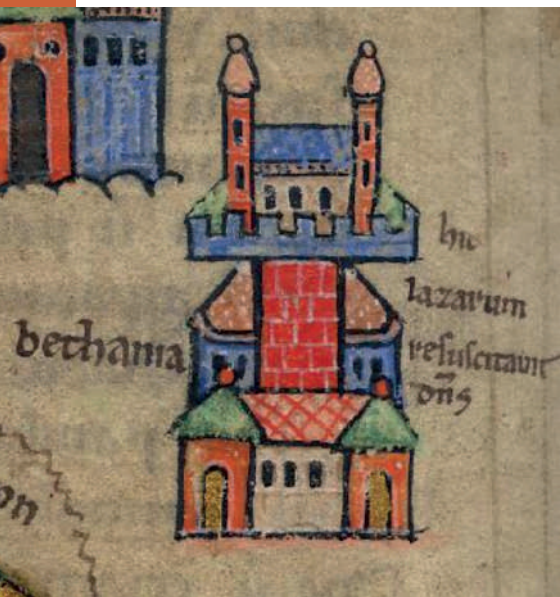 bethania
hic
lazarum
resuscitauit
dn̄s
on